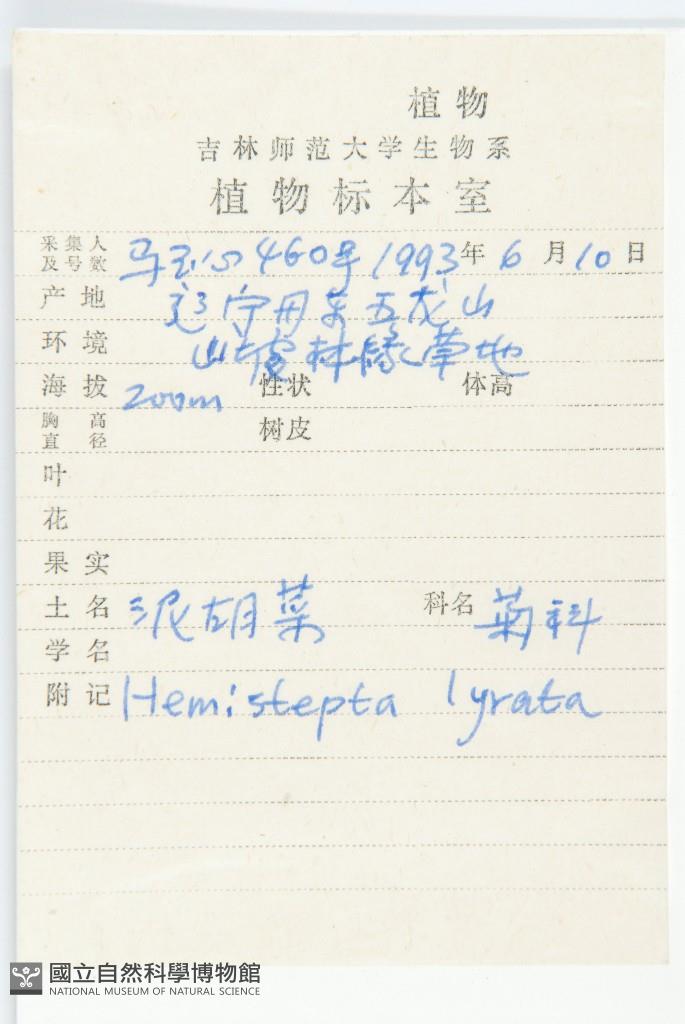 植物
吉林师范大学生物系
植物标本室
采集人及号数 马玉心 460号 1993年6月10日
产地 辽宁丹东五龙山
环境 山坡林缘草地
海拔 200m 性状 体高
胸高直径 树皮
叶
花
果实
土名 泥胡菜 科名 菊科
学名
附记 Hemistepta lyrata
國立自然科學博物館
NATIONAL MUSEUM OF NATURAL SCIENCE